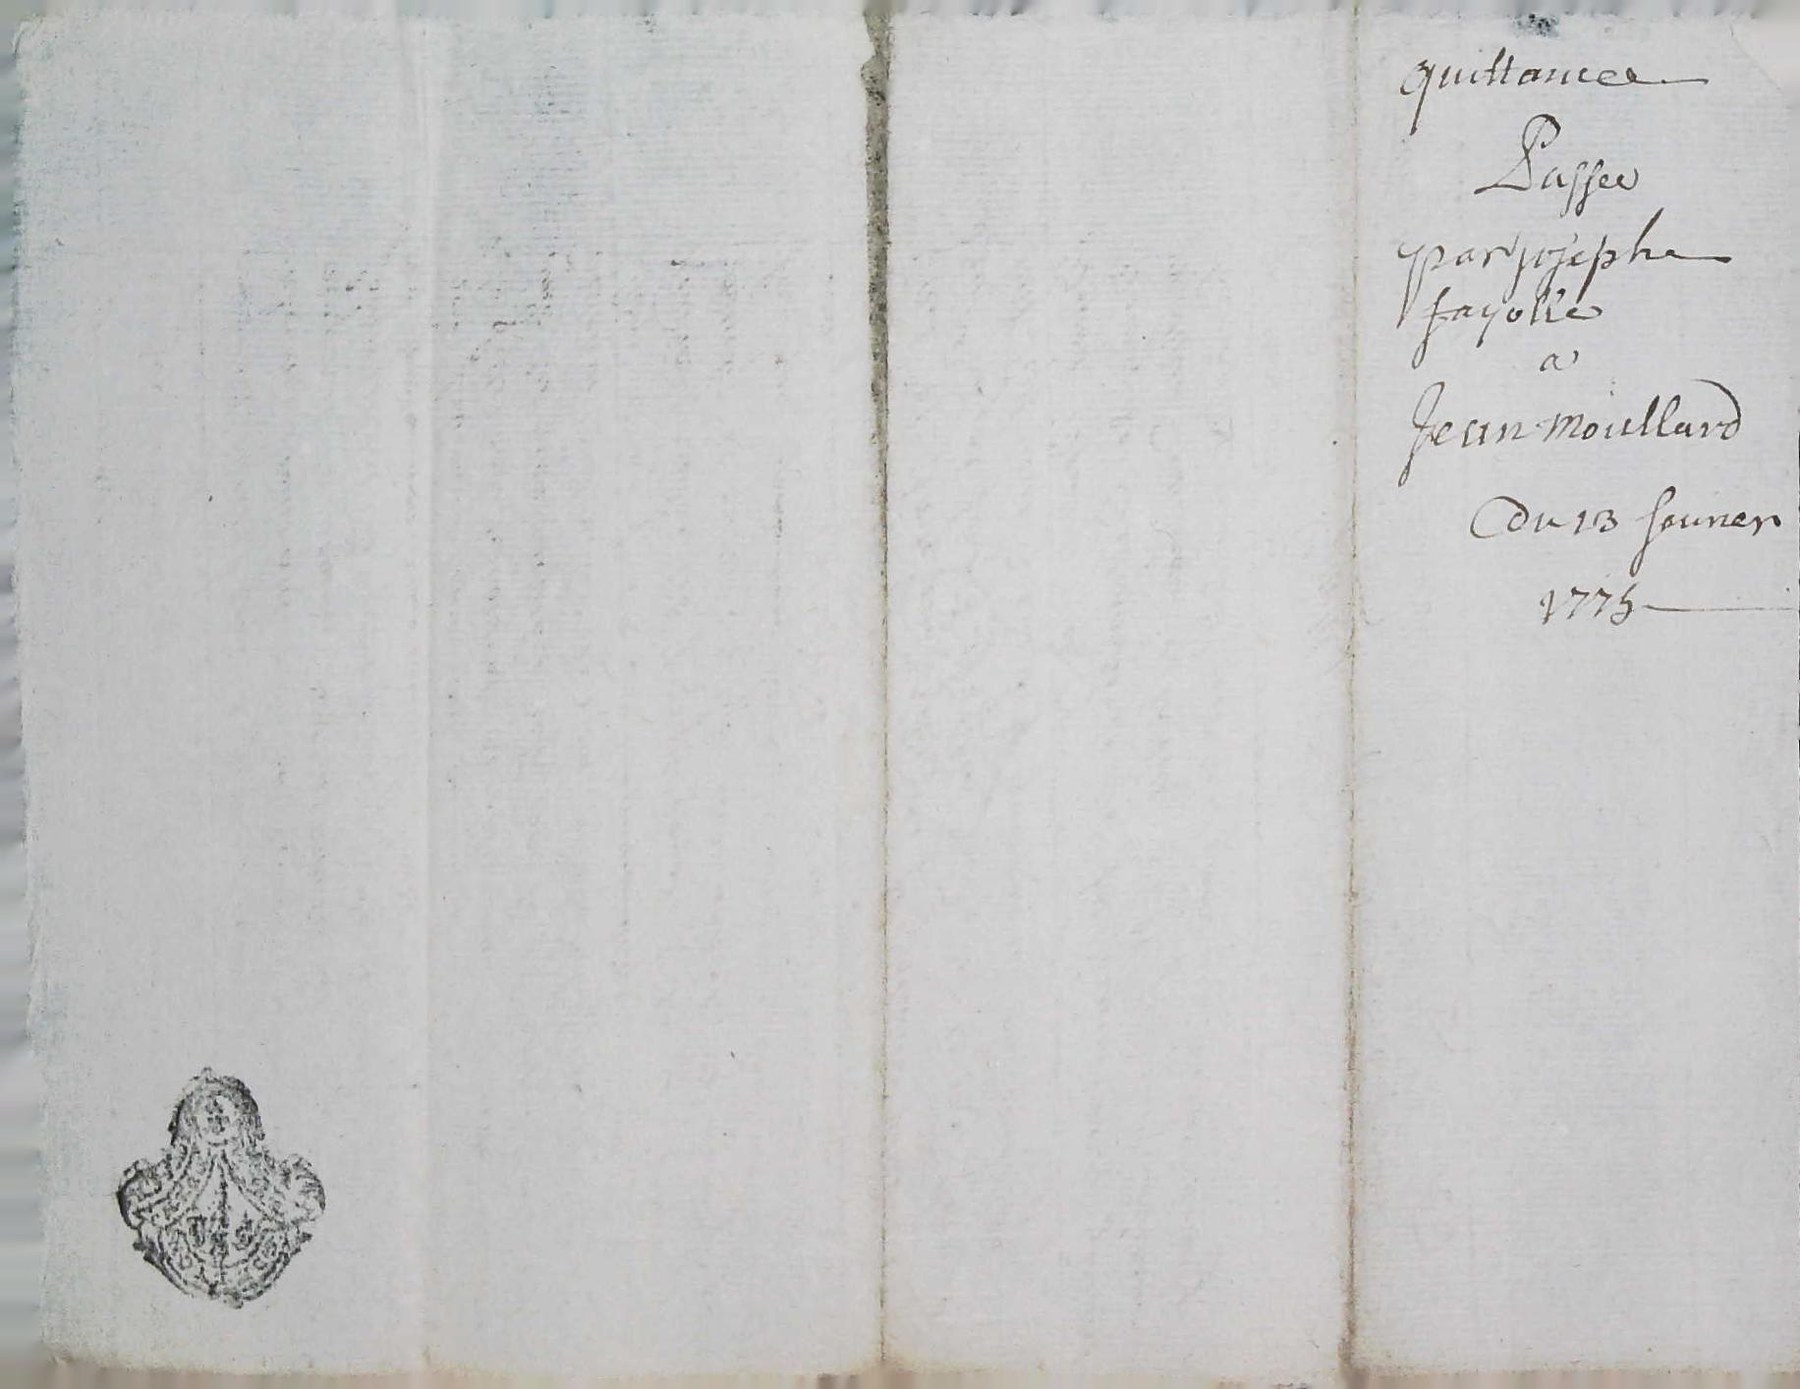 quittance
Passee
par josephe
fayolle
a
Jean Moullard
du 13 feurier
1775